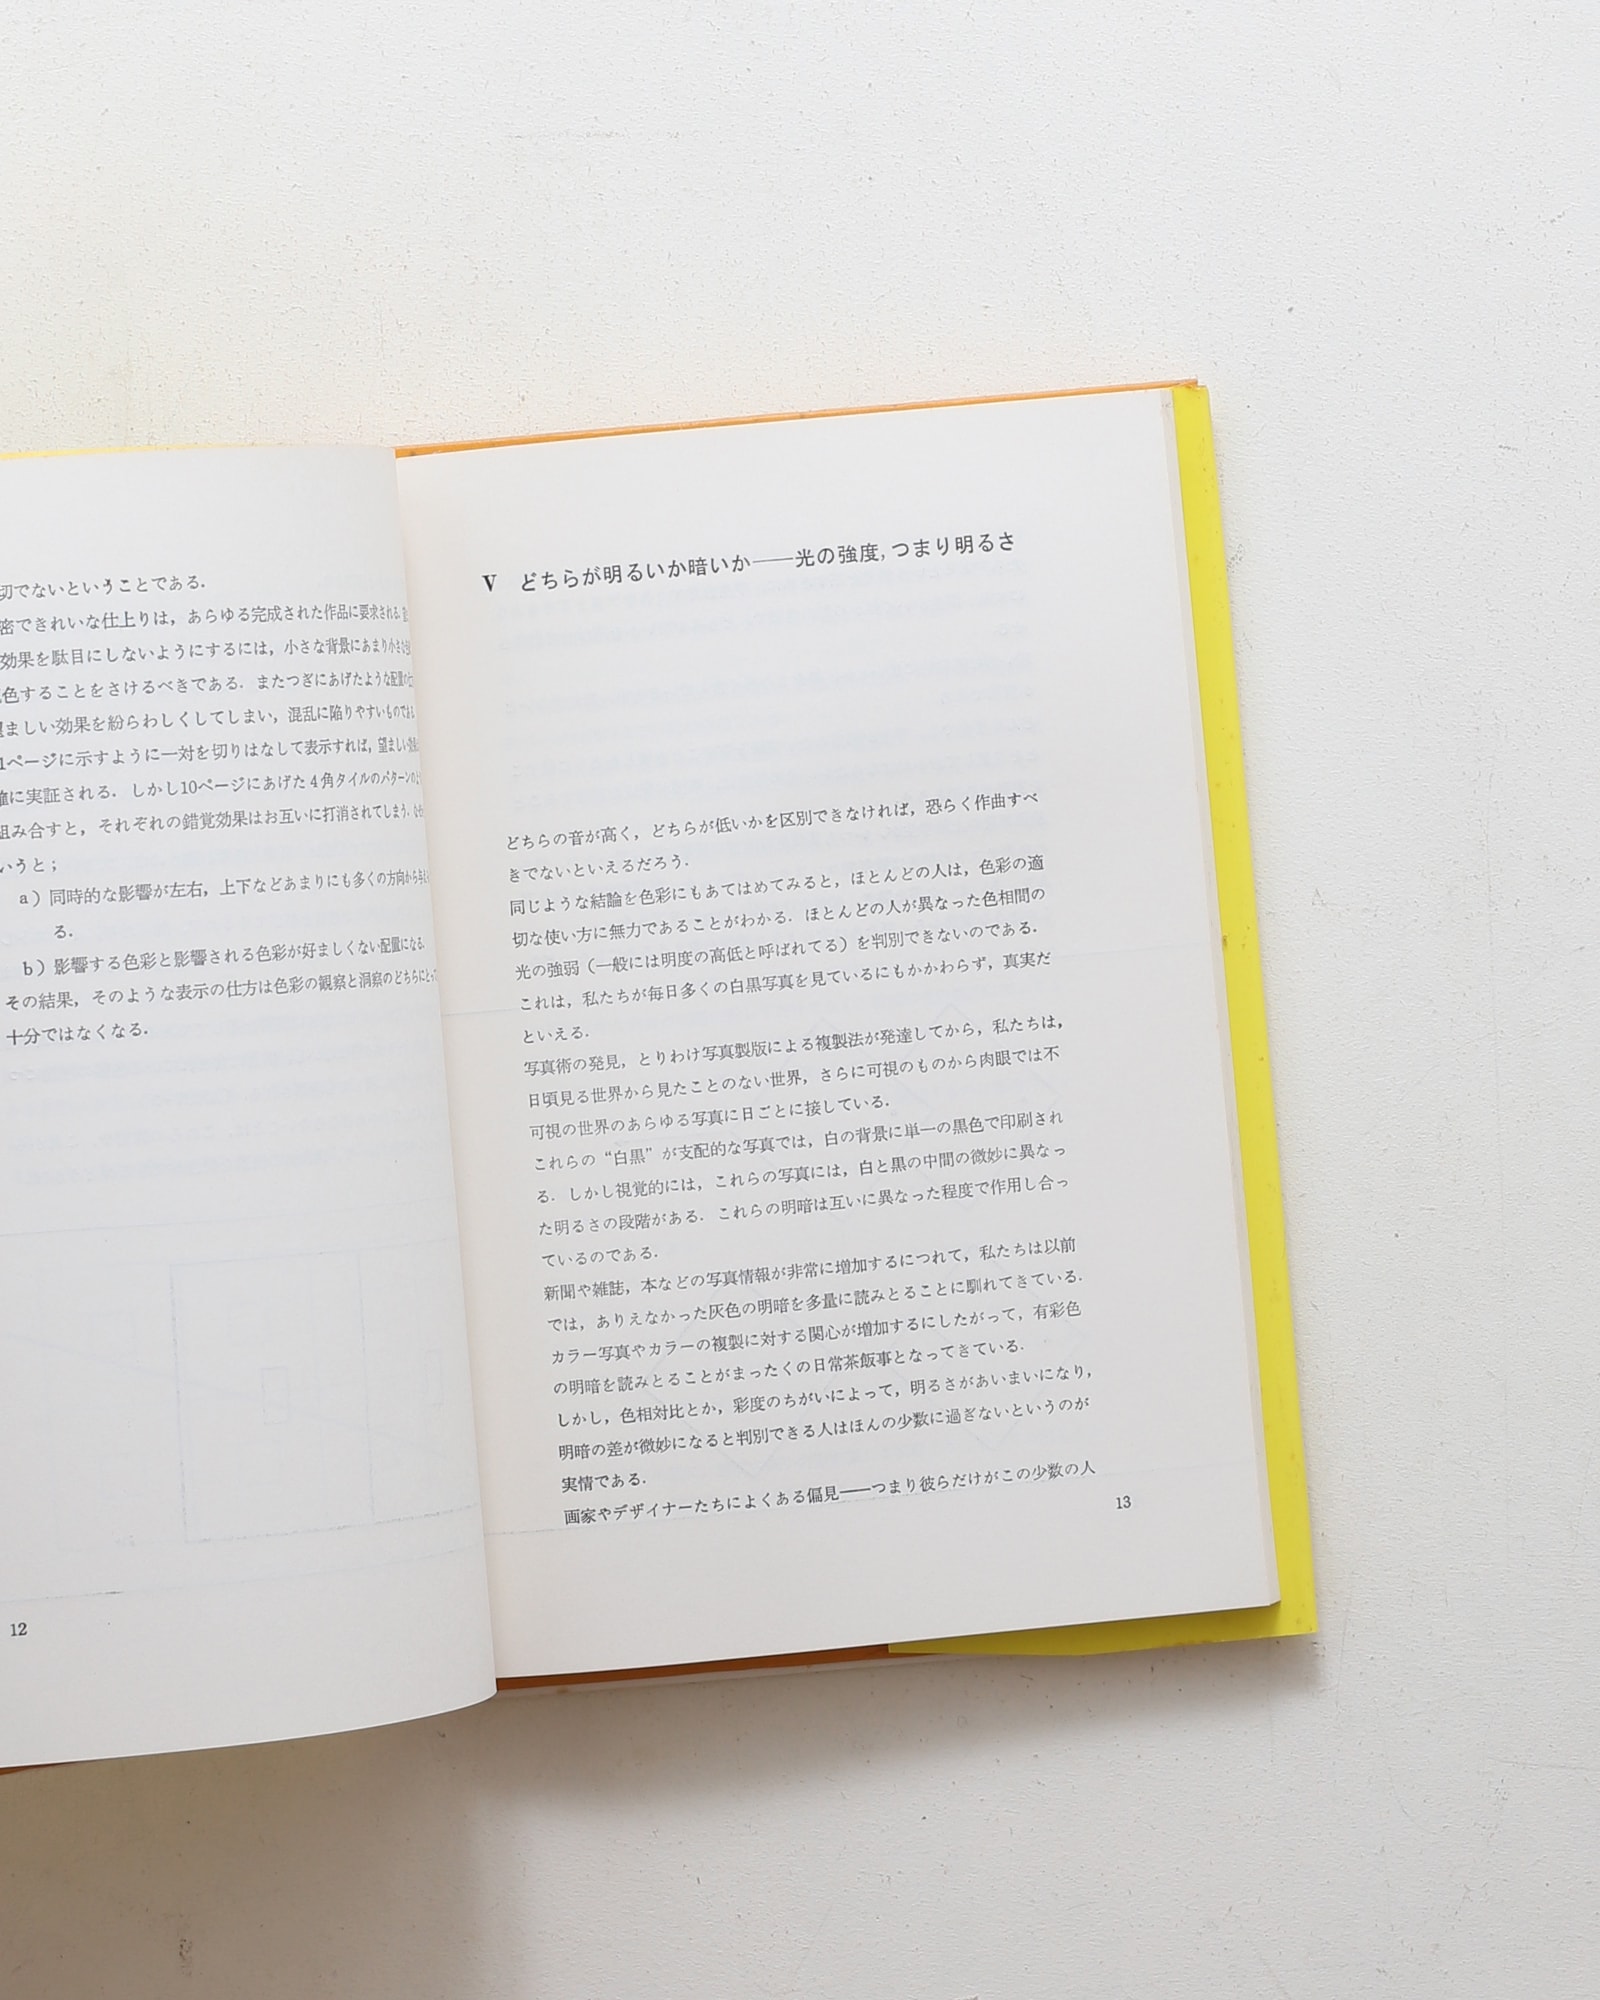 切でないということである．
密できれいな仕上りは，あらゆる完成された作品に要求される．
効果を駄目にしないようにするには，小さな背景にあまり小さな
色することをさけるべきである．またつぎにあげたような配置の
ましい効果を紛らわしくしてしまい，混乱に陥りやすいものである．
1ページに示すように一対を切りはなして表示すれば，望ましい
に実証される．しかし10ページにあげた4角タイルのパターンの
組み合すと，それぞれの錯覚効果はお互いに打消されてしまう．
いうと；
a）同時的な影響が左右，上下などあまりにも多くの方向から
る．
b）影響する色彩と影響される色彩が好ましくない配置になる．
その結果，そのような表示の仕方は色彩の観察と洞察のどちらにとっ
十分ではなくなる．
12
V どちらが明るいか暗いか──光の強度，つまり明るさ
どちらの音が高く，どちらが低いかを区別できなければ，恐らく作曲すべ
きでないといえるだろう．
同じような結論を色彩にもあてはめてみると，ほとんどの人は，色彩の適
切な使い方に無力であることがわかる．ほとんどの人が異なった色相間の
光の強弱（一般には明度の高低と呼ばれてる）を判別できないのである．
これは，私たちが毎日多くの白黒写真を見ているにもかかわらず，真実だ
といえる．
写真術の発見，とりわけ写真製版による複製法が発達してから，私たちは，
日頃見る世界から見たことのない世界，さらに可視のものから肉眼では不
可視の世界のあらゆる写真に日ごとに接している．
これらの“白黒”が支配的な写真では，白の背景に単一の黒色で印刷され
る．しかし視覚的には，これらの写真には，白と黒の中間の微妙に異なっ
た明るさの段階がある．これらの明暗は互いに異なった程度で作用し合っ
ているのである．
新聞や雑誌，本などの写真情報が非常に増加するにつれて，私たちは以前
では，ありえなかった灰色の明暗を多量に読みとることに馴れてきている．
カラー写真やカラーの複製に対する関心が増加するにしたがって，有彩色
の明暗を読みとることがまったくの日常茶飯事となってきている．
しかし，色相対比とか，彩度のちがいによって，明るさがあいまいになり，
明暗の差が微妙になると判別できる人はほんの少数に過ぎないというのが
実情である．
画家やデザイナーたちによくある偏見──つまり彼らだけがこの少数の人
13